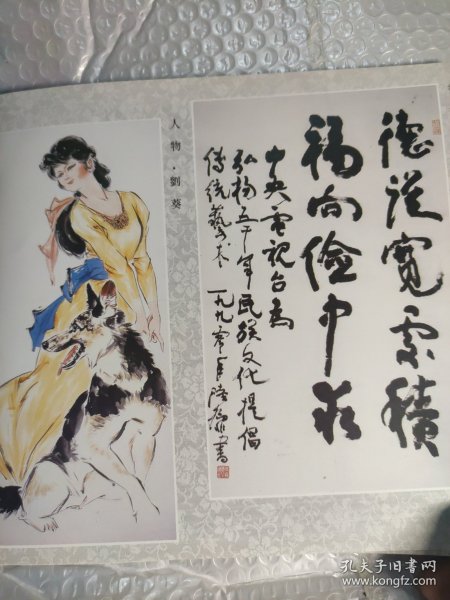 德從寬處積
福向儉中求
中央電視台為
弘揚五千年民族文化提倡
傳統藝术
一九九零年
書
人物·劉葵
孔夫子旧书网
www.kongfz.com